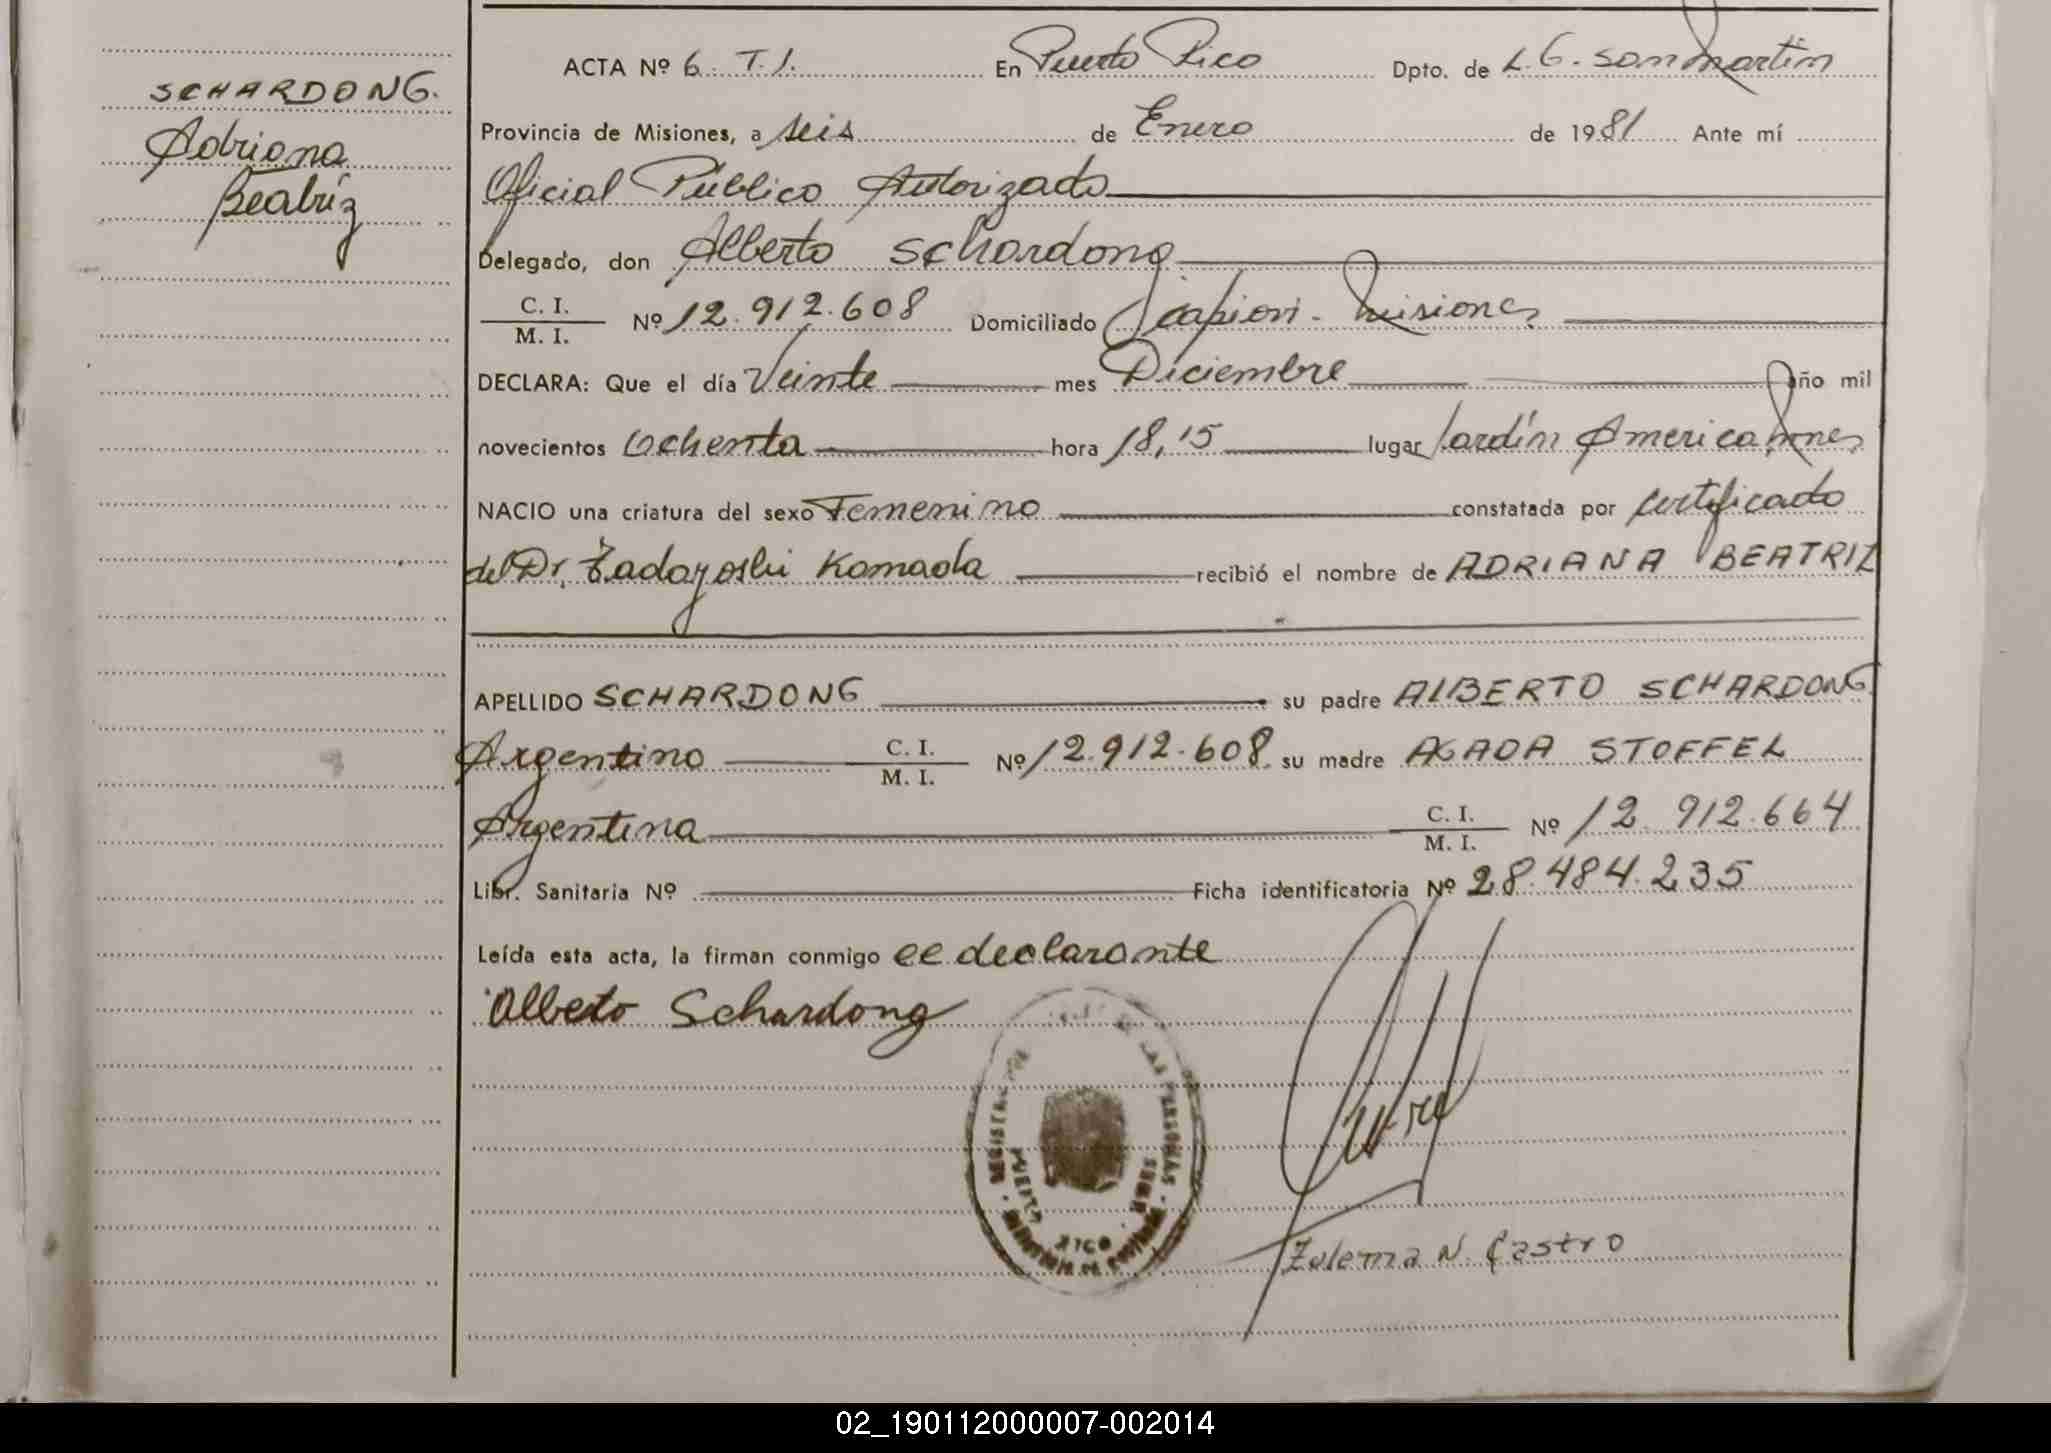 SCHARDONG.
Adriana
Beatríz
ACTA Nº 6. T.I. En Puerto Rico Dpto. de L. G. San Martin
Provincia de Misiones, a seis de Enero de 1981 Ante mí
Oficial Público Autorizado
Delegado, don Alberto Schardong
C. I.
M. I.
Nº 12.912.608 Domiciliado Capiovi - Misiones
DECLARA: Que el día Veinte mes Diciembre año mil
novecientos Ochenta hora 18,15 lugar Jardín America, Mnes
NACIO una criatura del sexo Femenino constatada por certificado
del Dr. Tadayoshi Kamada recibió el nombre de ADRIANA BEATRIZ
APELLIDO SCHARDONG su padre ALBERTO SCHARDONG
Argentino C. I. M. I. Nº 12.912.608 su madre AGADA STOFFEL
Argentina C. I. M. I. Nº 12.912.664
Libr. Sanitaria Nº Ficha identificatoria Nº 28.484.235
Leída esta acta, la firman conmigo el declarante
Alberto Schardong
DE LAS PERSONAS
PUERTO RICO
Zulema N. Castro
02_190112000007-002014